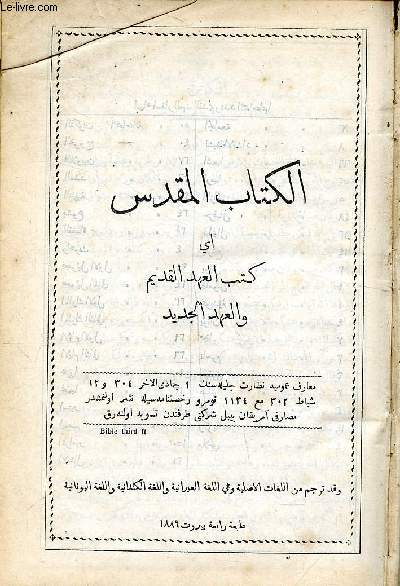 الكتاب المقدس
اي
كتب العهد القديم
والعهد الجديد
معارف عموميه نظارت جليله سنك ٦ جمادى الاخر ٣٠٤ و ١٢
شباط ٣٠٢ مع ١١٣٤ نومرو رخصتنامه سيله نشر اولنمشدر
مصارفى امريقان بيبل شركتى طرفندن تسويه اولنه رق
Bible third
وقد ترجم من اللغات الاصلية وهي اللغة العبرانية واللغة الكلدانية واللغة اليونانية
طبعة رابعة بيروت ١٨٨٩
le-livre.com